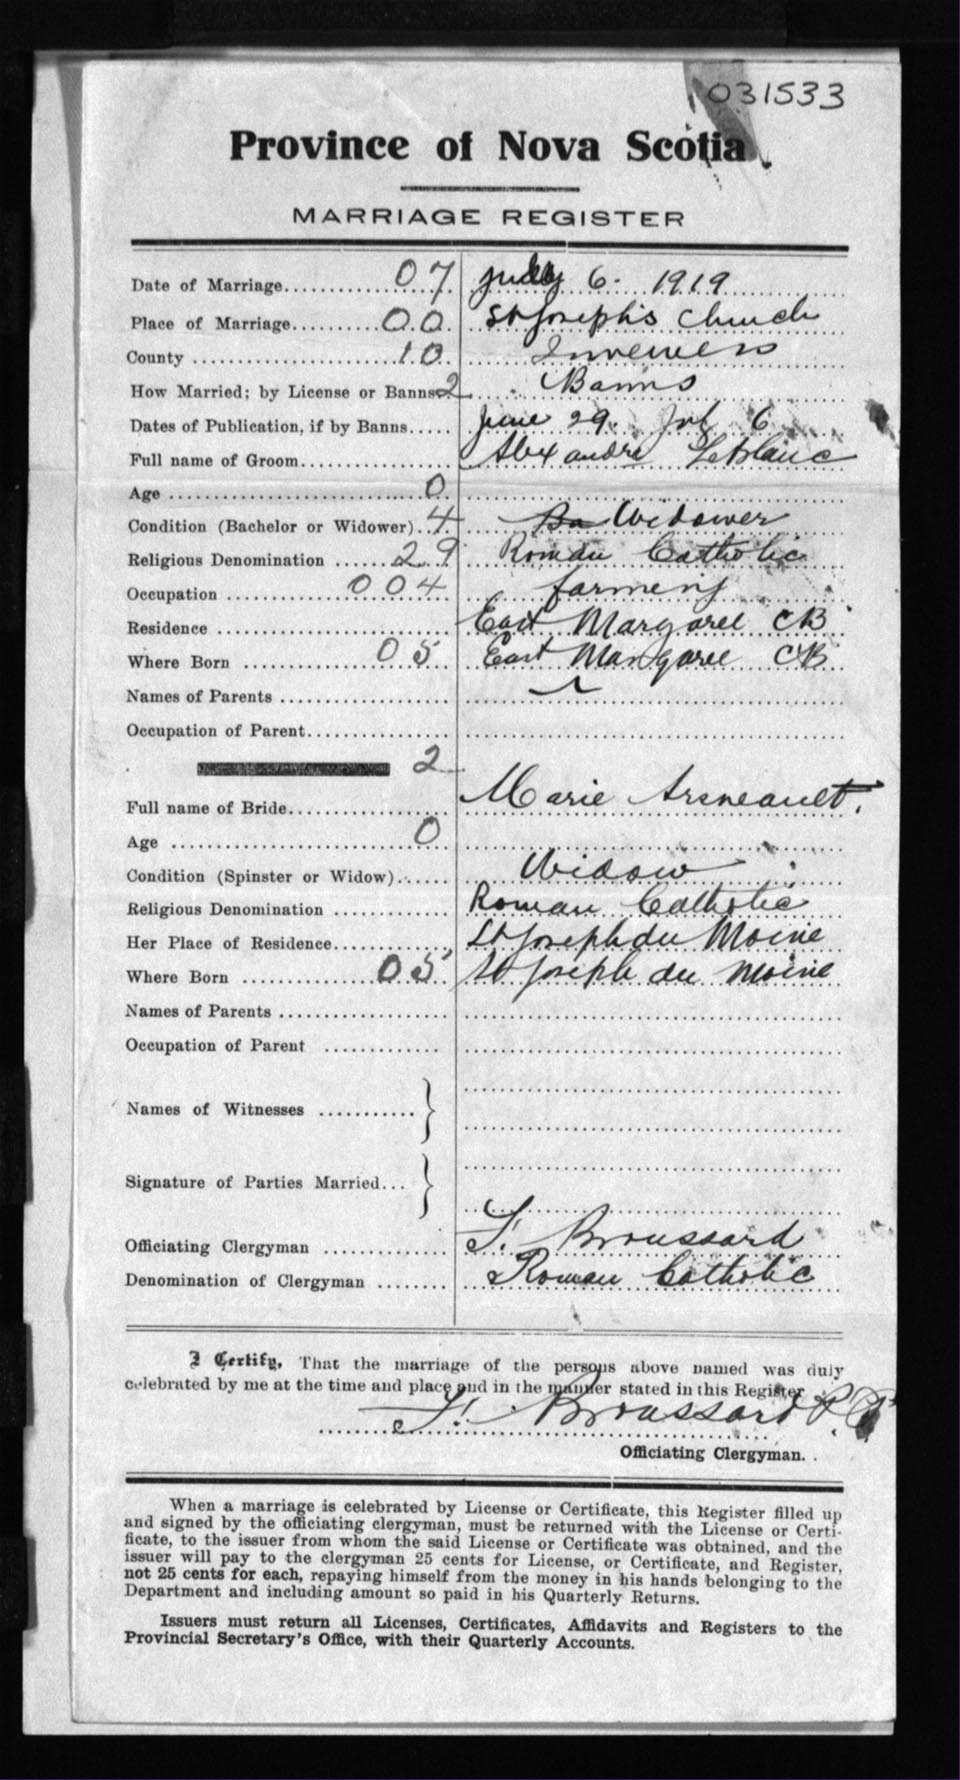 031533
Province of Nova Scotia
MARRIAGE REGISTER
Date of Marriage 07 July 6. 1919
Place of Marriage 00 St Joseph's Church
County 10 Inverness
How Married; by License or Banns 2 Banns
Dates of Publication, if by Banns June 29. Jul 6
Full name of Groom Alexandre LeBlanc
Age 0
Condition (Bachelor or Widower) 4 Ba Widower
Religious Denomination 29 Roman Catholic
Occupation 004 farming
Residence East Margaree CB
Where Born 05 East Margaree CB
Names of Parents
Occupation of Parent
2
Full name of Bride Marie Arseneault.
Age 0
Condition (Spinster or Widow) Widow
Religious Denomination Roman Catholic
Her Place of Residence St Joseph du Moine
Where Born 05 St Joseph du Moine
Names of Parents
Occupation of Parent
Names of Witnesses
Signature of Parties Married
Officiating Clergyman Broussard
Denomination of Clergyman Roman Catholic
I Certify, That the marriage of the persons above named was duly
celebrated by me at the time and place and in the manner stated in this Register
Broussard P.P.
Officiating Clergyman.
When a marriage is celebrated by License or Certificate, this Register filled up
and signed by the officiating clergyman, must be returned with the License or Certi-
ficate, to the issuer from whom the said License or Certificate was obtained, and the
issuer will pay to the clergyman 25 cents for License, or Certificate, and Register,
not 25 cents for each, repaying himself from the money in his hands belonging to the
Department and including amount so paid in his Quarterly Returns.
Issuers must return all Licenses, Certificates, Affidavits and Registers to the
Provincial Secretary's Office, with their Quarterly Accounts.